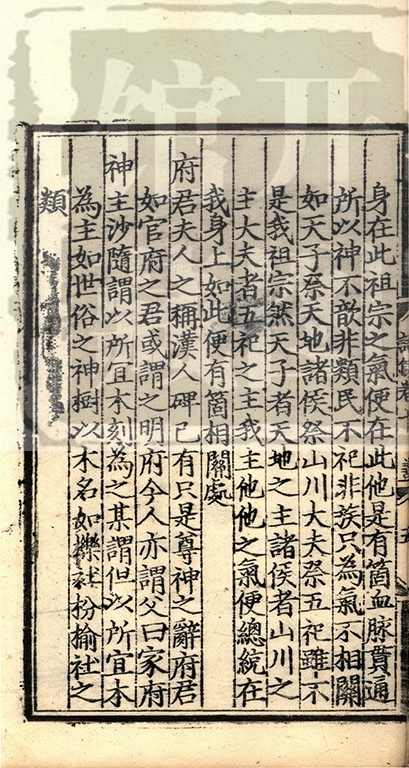 身在此祖宗之氣便在此他是有箇血脉貫通
所以神不歆非類民不祀非族只為氣不相關
如天子祭天地諸侯祭山川大夫祭五祀雖不
是我祖宗然天子者天地之主諸侯者山川之
主大夫者五祀之主我主他他之氣便總統在
我身上如此便有箇相關處
府君夫人之稱漢人碑已有只是尊神之辭府君
如官府之君或謂之明府今人亦謂父曰家府
神主沙隨謂以所宜木刻為之某謂但以所宜木
為主如世俗之神樹以木名如櫟社枌榆社之
類